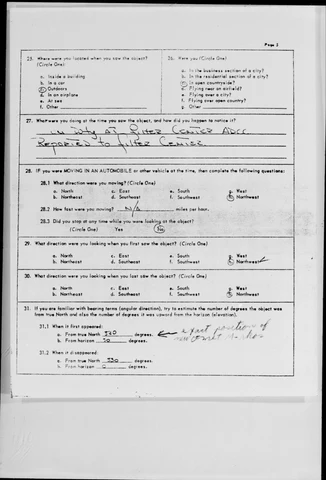 Page 3
25. Where were you located when you saw the object?
(Circle One)
a. Inside a building
b. In a car
c. Outdoors
d. In an airplane
e. At sea
f. Other
26. Were you (Circle One)
a. In the business section of a city?
b. In the residential section of a city?
c. In open countryside?
d. Flying near an airfield?
e. Flying over a city?
f. Flying over open country?
g. Other
27. What were you doing at the time you saw the object, and how did you happen to notice it?
ON Duty AT Filter Center ADCC
Reported to filter Center
28. IF you were MOVING IN AN AUTOMOBILE or other vehicle at the time, then complete the following questions:
28.1 What direction were you moving? (Circle One)
a. North c. East e. South g. West
b. Northeast d. Southeast f. Southwest h. Northwest
28.2 How fast were you moving? N/A miles per hour.
28.3 Did you stop at any time while you were looking at the object?
(Circle One) Yes No
29. What direction were you looking when you first saw the object? (Circle One)
a. North c. East e. South g. West
b. Northeast d. Southeast f. Southwest h. Northwest
30. What direction were you looking when you last saw the object? (Circle One)
a. North c. East e. South g. West
b. Northeast d. Southeast f. Southwest h. Northwest
31. If you are familiar with bearing terms (angular direction), try to estimate the number of degrees the object was
from true North and also the number of degrees it was upward from the horizon (elevation).
31.1 When it first appeared:
a. From true North 320 degrees.
b. From horizon 30 degrees.
exact position of
31.2 When it disappeared:
a. From true North 330 degrees.
b. From horizon 0 degrees.